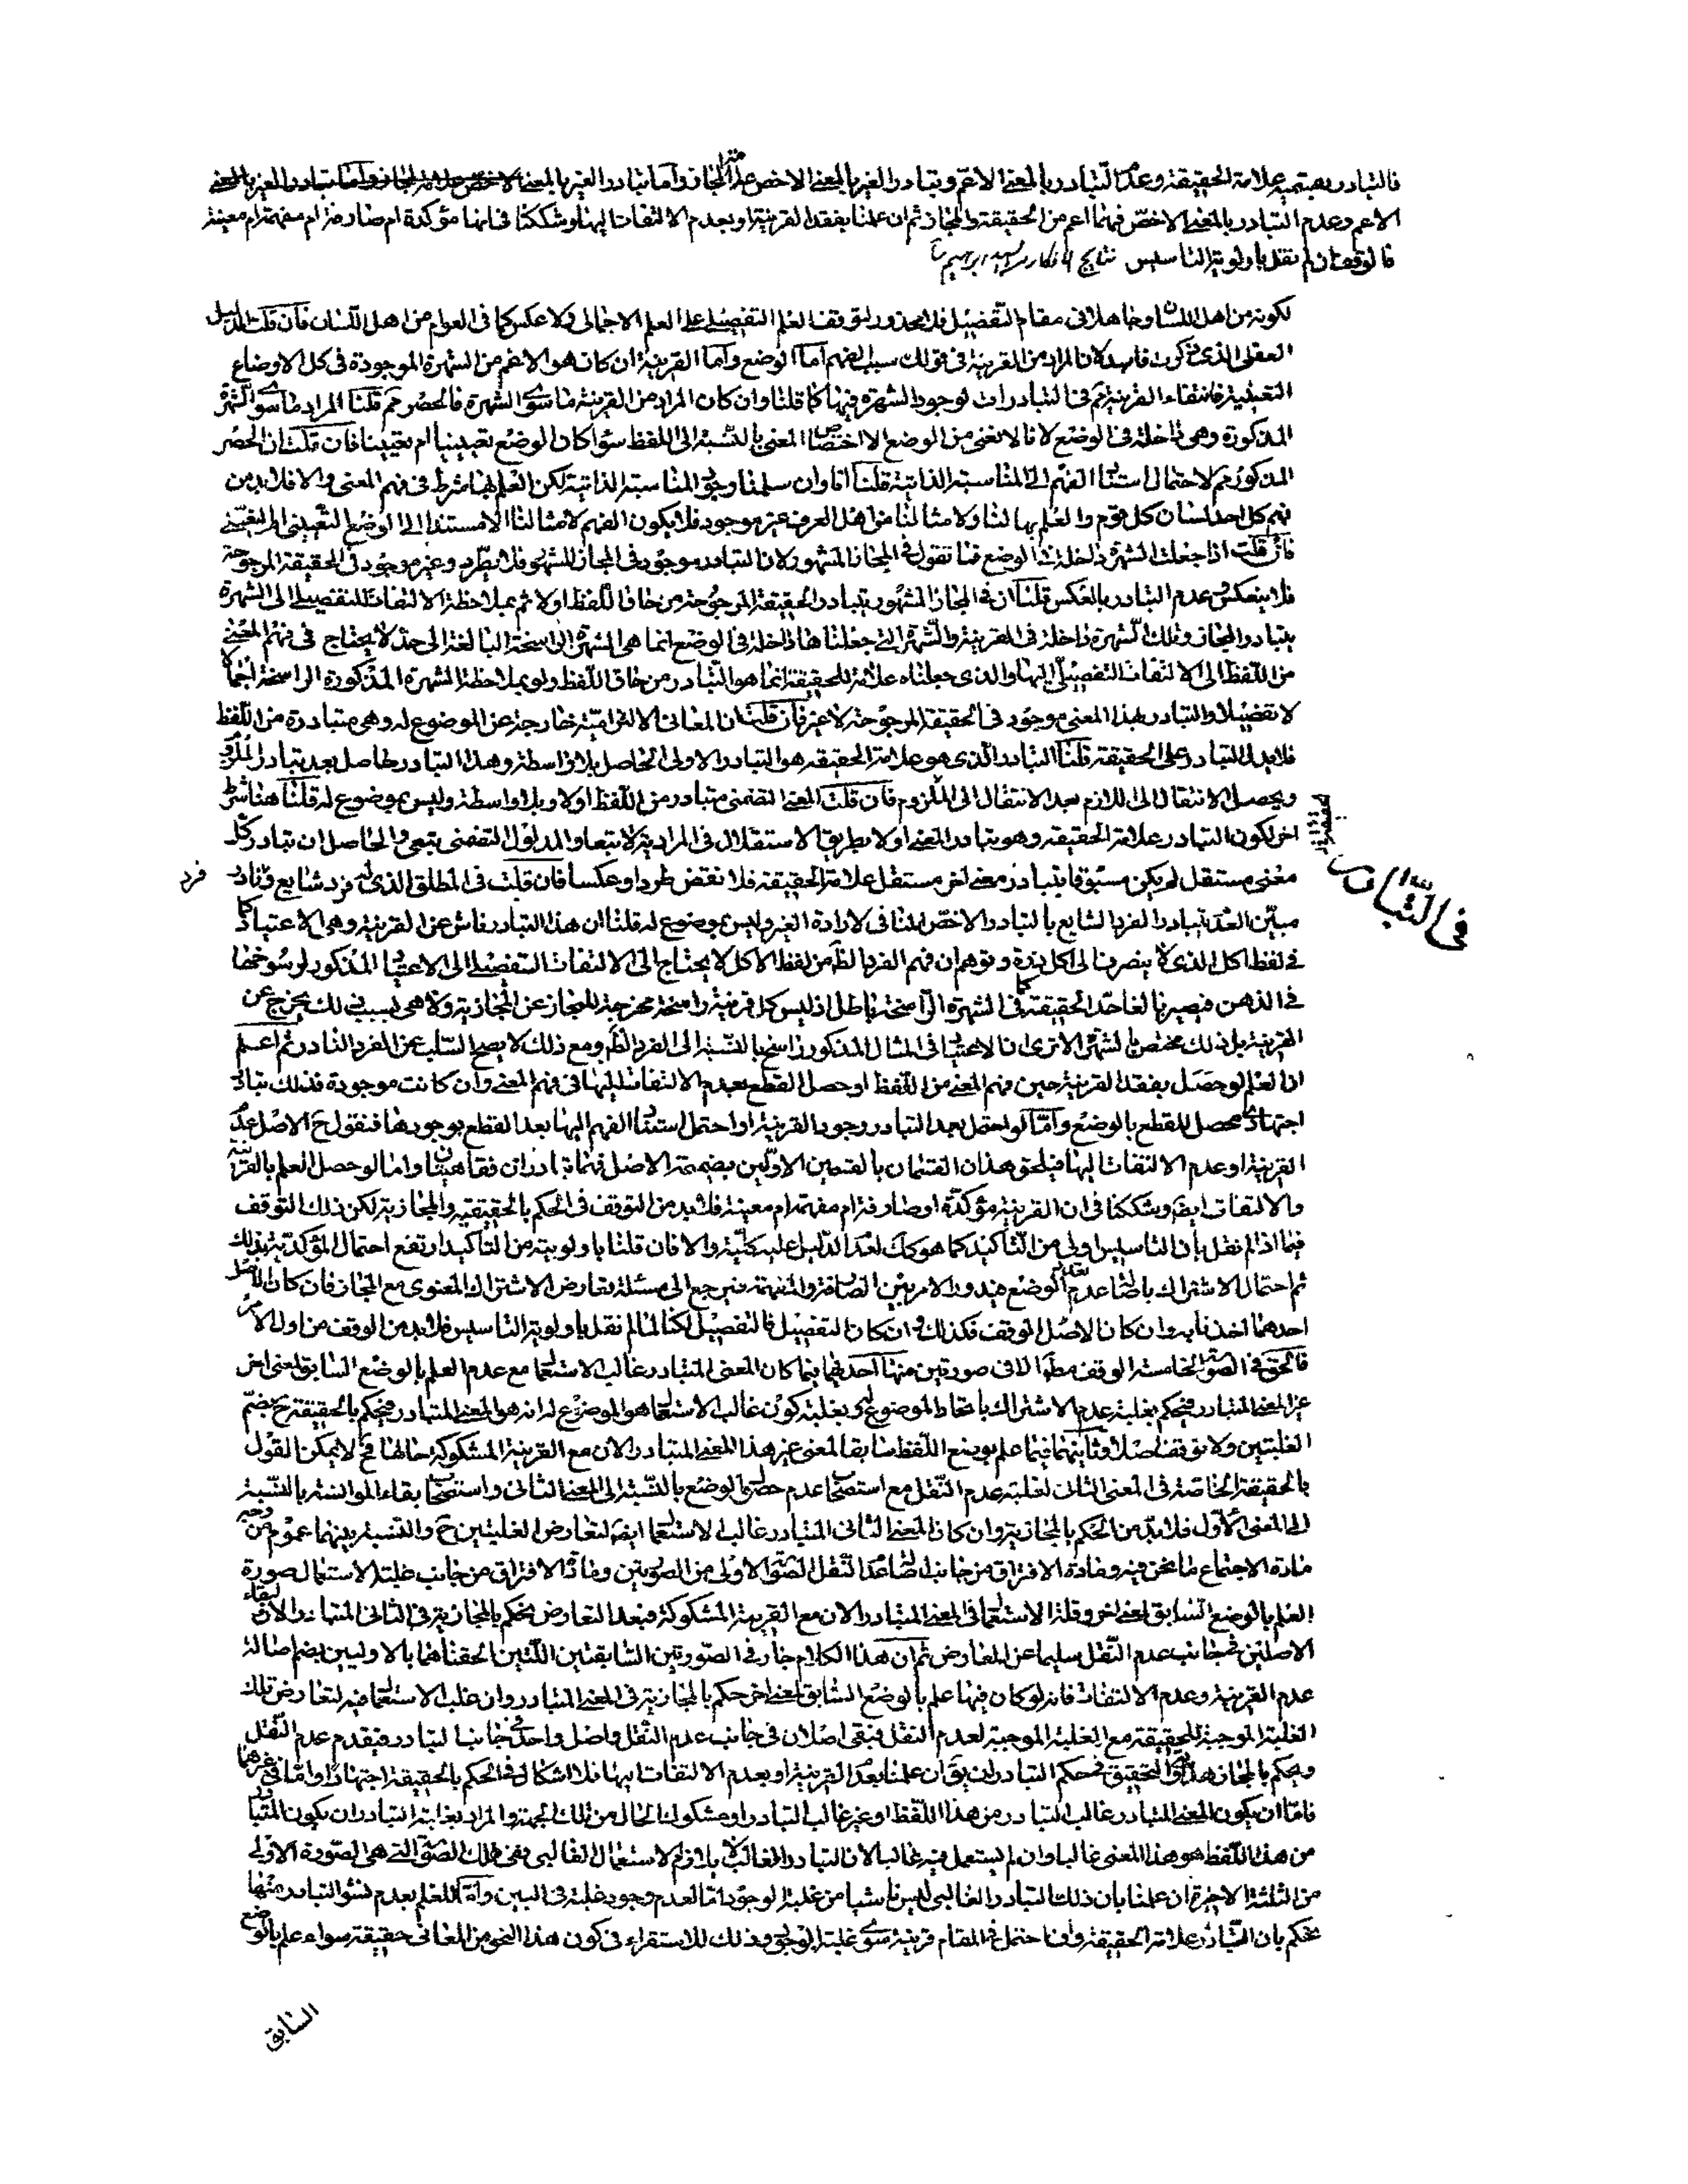 فالتبادر بقسميه علامة الحقيقة وعدم التبادر بالمعنى الاعم وتبادر الغير بالمعنى الاخص علامة المجاز واما تبادر الغير بالمعنى
الاعم وعدم التبادر بالمعنى الاخص فهما اعم من الحقيقة والمجاز ثم ان علمنا بفقد القرينة او بعدم الالتفات اليها وشككنا في انها مؤكدة ام صارفة ام مفهمة ام معينة
فالوقف ان لم نقل باولوية التاسيس نتايج الافكار
لكونه من اهل اللسان وجاهلا في مقام التفصيل فلا محذور لتوقف العلم التفصيلي على العلم الاجمالي ولا عكس كما في العوام من اهل اللسان فان قلت الدليل
العقلي الذي ذكرت فاسد لان المراد من القرينة في قولك سبب الفهم اما الوضع واما القرينة ان كان هو الاعم من الشهرة الموجودة في كل الاوضاع
التعينية فانتفاء القرينة مم في التبادرات لوجود الشهرة فيها كما قلنا وان كان المراد من القرينة ما سوى الشهرة فالحصر مم قلنا المراد ما سوى الشهرة
المذكورة وهي داخلة في الوضع لانا لا نعني من الوضع الا اختصاص المعنى بالنسبة الى اللفظ سواء كان الوضع تعيينيا ام تعينيا فان قلت ان الحصر
المذكور مم لاحتمال استناد الفهم الى المناسبة الذاتية قلنا انا وان سلمنا وجود المناسبة الذاتية لكن العلم بها شرط في فهم المعنى والا فلا بد من
فهم كل احد لسان كل قوم والعلم بها لنا ولامثالنا من اهل العرف غير موجود فلا يكون الفهم لامثالنا الا مستندا الى الوضع التعييني او التعيني
فان قلت اذا جعلت الشهرة داخلة في الوضع فما تقول في المجاز المشهور لان التبادر موجود في المجاز المشهور فلا يطرد وغير موجود في الحقيقة المرجوحة
فلا ينعكس وعدم التبادر بالعكس قلنا ان في المجاز المشهور يتبادر الحقيقة المرجوحة من حاق اللفظ اولا ثم بملاحظة الالتفات التفصيلي الى الشهرة
يتبادر المجاز وتلك الشهرة داخلة في القرينة والشهرة التي جعلناها داخلة في الوضع انما هي الشهرة الراسخة البالغة الى حد لا يحتاج في فهم المعنى
من اللفظ الى الالتفات التفصيلي اليها والذي جعلناه علامة للحقيقة انما هو التبادر من حاق اللفظ ولو بملاحظة الشهرة المذكورة الراسخة اجمالا
لا تفصيلا والتبادر بهذا المعنى موجود في الحقيقة المرجوحة لا غير فان قلت ان المعاني الالتزامية خارجة عن الموضوع له وهي متبادرة من اللفظ
فلا يدل التبادر على الحقيقة قلنا التبادر الذي هو علامة الحقيقة هو التبادر الاولي الحاصل بلا واسطة وهذا التبادر حاصل بعد تبادر الملزوم
ويحصل الانتقال الى اللازم بعد الانتقال الى الملزوم فان قلت المعنى التضمني متبادر من اللفظ اولا وبلا واسطة وليس بموضوع له قلنا هنا شرط
اخر لكون التبادر علامة الحقيقة وهو تبادر المعنى اولا بطريق الاستقلال في المرادية لا تبعا والمدلول التضمني تبعي والحاصل ان تبادر كل
معنى مستقل لم يكن مسبوقا بتبادر معنى اخر مستقل علامة الحقيقة فلا نقض طردا وعكسا فان قلت في المطلق الذي له فرد شايع ونادر
فرد
في التبادر
مبين العدم يتبادر الفرد الشايع بالتبادر الاخص المنافي لارادة الغير وليس بموضوع له قلنا ان هذا التبادر ناش عن القرينة وهي الاعتياد كما
في لفظ اكل الذي ينصرف الى اكل وتوهم ان فهم الفرد الظاهر من لفظ الاكل لا يحتاج الى الالتفات التفصيلي الى الاعتياد المذكور لرسوخها
في الذهن فيصير بالغا حد الحقيقة كما في الشهرة الراسخة باطل اذ ليس كل قرينة راسخة مخرجة للمجاز عن المجازية ولا هي بسبب ذلك يخرج عن
القرينة بل ذلك مختص بالشهرة الا ترى ان الاعتياد في المثال المذكور راسخ بالنسبة الى الفرد الظاهر ومع ذلك لا يصح السلب عن الفرد النادر ثم اعلم
ان العلم لو حصل بفقد القرينة حين فهم المعنى من اللفظ او حصل القطع بعدم الالتفات اليها في فهم المعنى وان كانت موجودة فذلك تبادر
اجتهادي محصل للقطع بالوضع واما لو احتمل بعد التبادر وجود القرينة او احتمل استناد الفهم اليها بعد القطع بوجودها فنقول ح الاصل عدم
القرينة او عدم الالتفات اليها فيلحق هذان القسمان بالقسمين الاولين بضميمة الاصل فهما تبادران فقاهتيان واما لو حصل العلم بالقرينة
والالتفات ايضا وشككنا في ان القرينة مؤكدة او صارفة ام مفهمة ام معينة فلا بد من التوقف في الحكم بالحقيقية والمجازية لكن ذلك التوقف
فيما اذا لم نقل بان التاسيس اولى من التاكيد كما هو كك لعدم الدليل عليه كلية والا فان قلنا باولويته من التاكيد ارتفع احتمال المؤكدية بذلك
ثم احتمال الاشتراك باصالة عدم تعدد الوضع فيدور الامر بين الصارفة والمفهمة فيرجع الى مسئلة تعارض الاشتراك المعنوي مع المجاز فان كان الاصل
احدهما اخذنا به وان كان الاصل الوقف فكذلك وان كان التفصيل فالتفصيل لكنا لما لم نقل باولوية التاسيس فلا بد من الوقف من اول الامر
فالحق في الصورة الخامسة الوقف مطلقا الا في صورتين منها احدهما فيما كان المعنى المتبادر غالب الاستعمال مع عدم العلم بالوضع السابق لمعنى اخر
غير المعنى المتبادر فيحكم بغلبة عدم الاشتراك باتحاد الموضوع له وبغلبة كون غالب الاستعمال هو الموضوع له انه هو المعنى المتبادر فيحكم بالحقيقة ح بضم
الغلبتين ولا توقف اصلا وثانيتهما فيما علم بوضع اللفظ سابقا لمعنى غير هذا المعنى المتبادر الان مع القرينة المشكوكة حالها فح لا يمكن القول
بالحقيقة الخاصة في المعنى الثاني لغلبة عدم النقل مع استصحاب عدم حصول الوضع بالنسبة الى المعنى الثاني واستصحاب بقاء الموانسة بالنسبة
الى المعنى الاول فلا بد من الحكم بالمجازية وان كان المعنى الثاني المتبادر غالب الاستعمال ايضا لتعارض الغلبتين ح والنسبة بينهما عموم من وجه
مادة الاجتماع ما نحن فيه ومادة الافتراق من جانب اصالة عدم النقل الصورة الاولى من الصورتين ومادة الافتراق من جانب غلبة الاستعمال صورة
العلم بالوضع السابق لمعنى اخر وقلة الاستعمال في المعنى المتبادر الان مع القرينة المشكوكة فبعد التعارض يحكم بالمجازية في الثاني المتبادر الان لبقاء
الاصلين في جانب عدم النقل سليما عن المعارض ثم ان هذا الكلام جار في الصورتين السابقتين اللتين الحقناهما بالاوليين بضم اصالة
عدم القرينة وعدم الالتفات فانه لو كان فيها علم بالوضع السابق لمعنى اخر حكم بالمجازية في المعنى المتبادر وان غلب الاستعمال فيه لتعارض تلك
الغلبة الموجبة للحقيقة مع الغلبة الموجبة لعدم النقل فبقي اصلان في جانب عدم النقل واصل واحد في جانب التبادر فيقدم عدم النقل
ويحكم بالمجاز هذا والتحقيق في حكم التبادر ان يق ان علمنا بعدم القرينة او بعدم الالتفات اليها فلا اشكال في الحكم بالحقيقة اجتهادا واما في غيرهما
فاما ان يكون المعنى المتبادر غالب التبادر من هذا اللفظ او غير غالب التبادر او مشكوك الحال من تلك الجهة والمراد بغلبة التبادر ان يكون المتبادر
من هذا اللفظ هو هذا المعنى غالبا وان لم يستعمل فيه غالبا لان التبادر الغالبي لا يلازم الاستعمال الغالبي ففي تلك الصورة التي هي الصورة الاولى
من الثلثة الاخيرة ان علمنا بان ذلك التبادر الغالبي ليس ناشيا من غلبة الوجود اما لعدم وجود غلبة في البين واما للعلم بعدم نشو التبادر منها
نحكم بان التبادر علامة الحقيقة وان احتمل في المقام قرينة سوى غلبة الوجود وذلك للاستقراء في كون هذا النحو من المعاني حقيقة سواء علم بالوضع
السابق